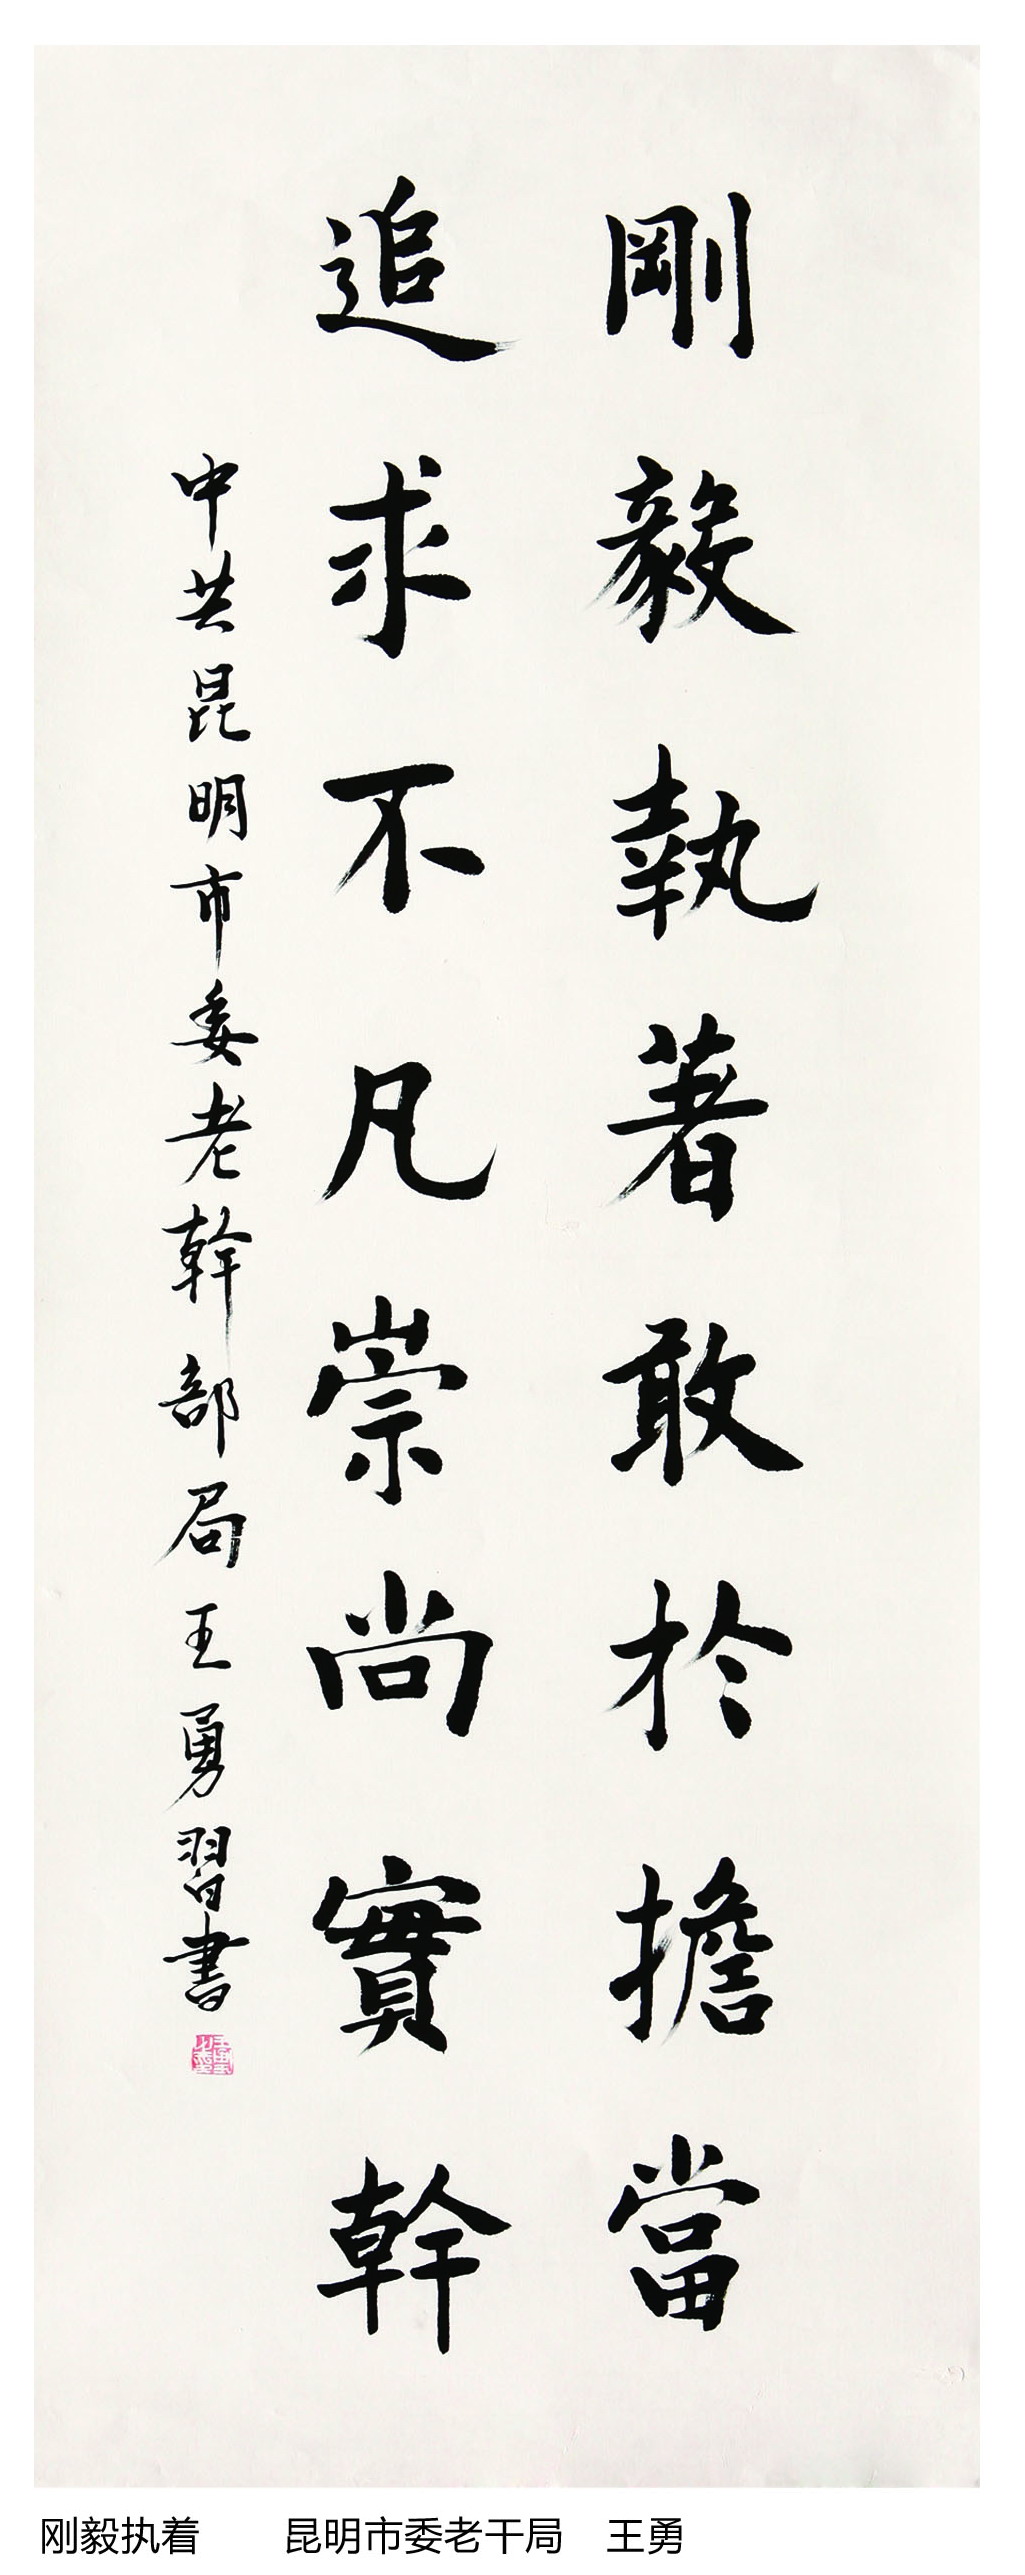 剛毅執著敢於擔當
追求不凡崇尚實幹
中共昆明市委老幹部局王勇習書
刚毅执着 昆明市委老干局 王勇